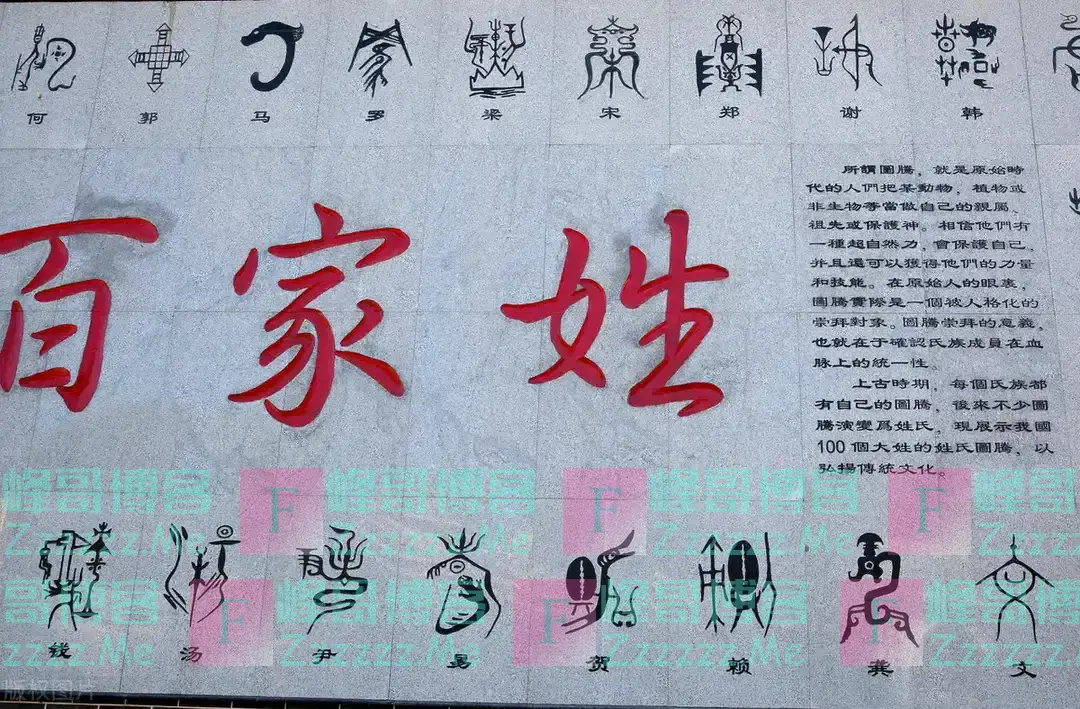 何 郭 马 罗 梁 宋 郑 谢 韩
百家姓
所謂圖騰，就是原始時
代的人們把某動物，植物或
非生物等當做自己的親屬、
祖先或保護神。相信他們有
一種超自然力，會保護自己，
并且還可以獲得他們的力量
和技能。在原始人的眼裏，
圖騰實際是一個被人格化的
崇拜對象。圖騰崇拜的意義，
也就在于確認氏族成員在血
脉上的統一性。
上古時期，每個氏族都
有自己的圖騰，後來不少圖
騰演變爲姓氏，現展示我國
100個大姓的姓氏圖騰，以
弘揚傳統文化。
峰哥博客 F 峰哥博客 F 峰哥博客 F 峰哥博客
Zzzzzz.Me Zzzzzz.Me Zzzzzz.Me Zzzzzz.Me
哥博客 F 峰哥博客 F 峰哥博客 F 峰哥博客
zzzzz.Me Zzzzzz.Me Zzzzzz.Me Zzzzzz.Me
钱 汤 尹 易 贺 赖 龚 文
版权图片